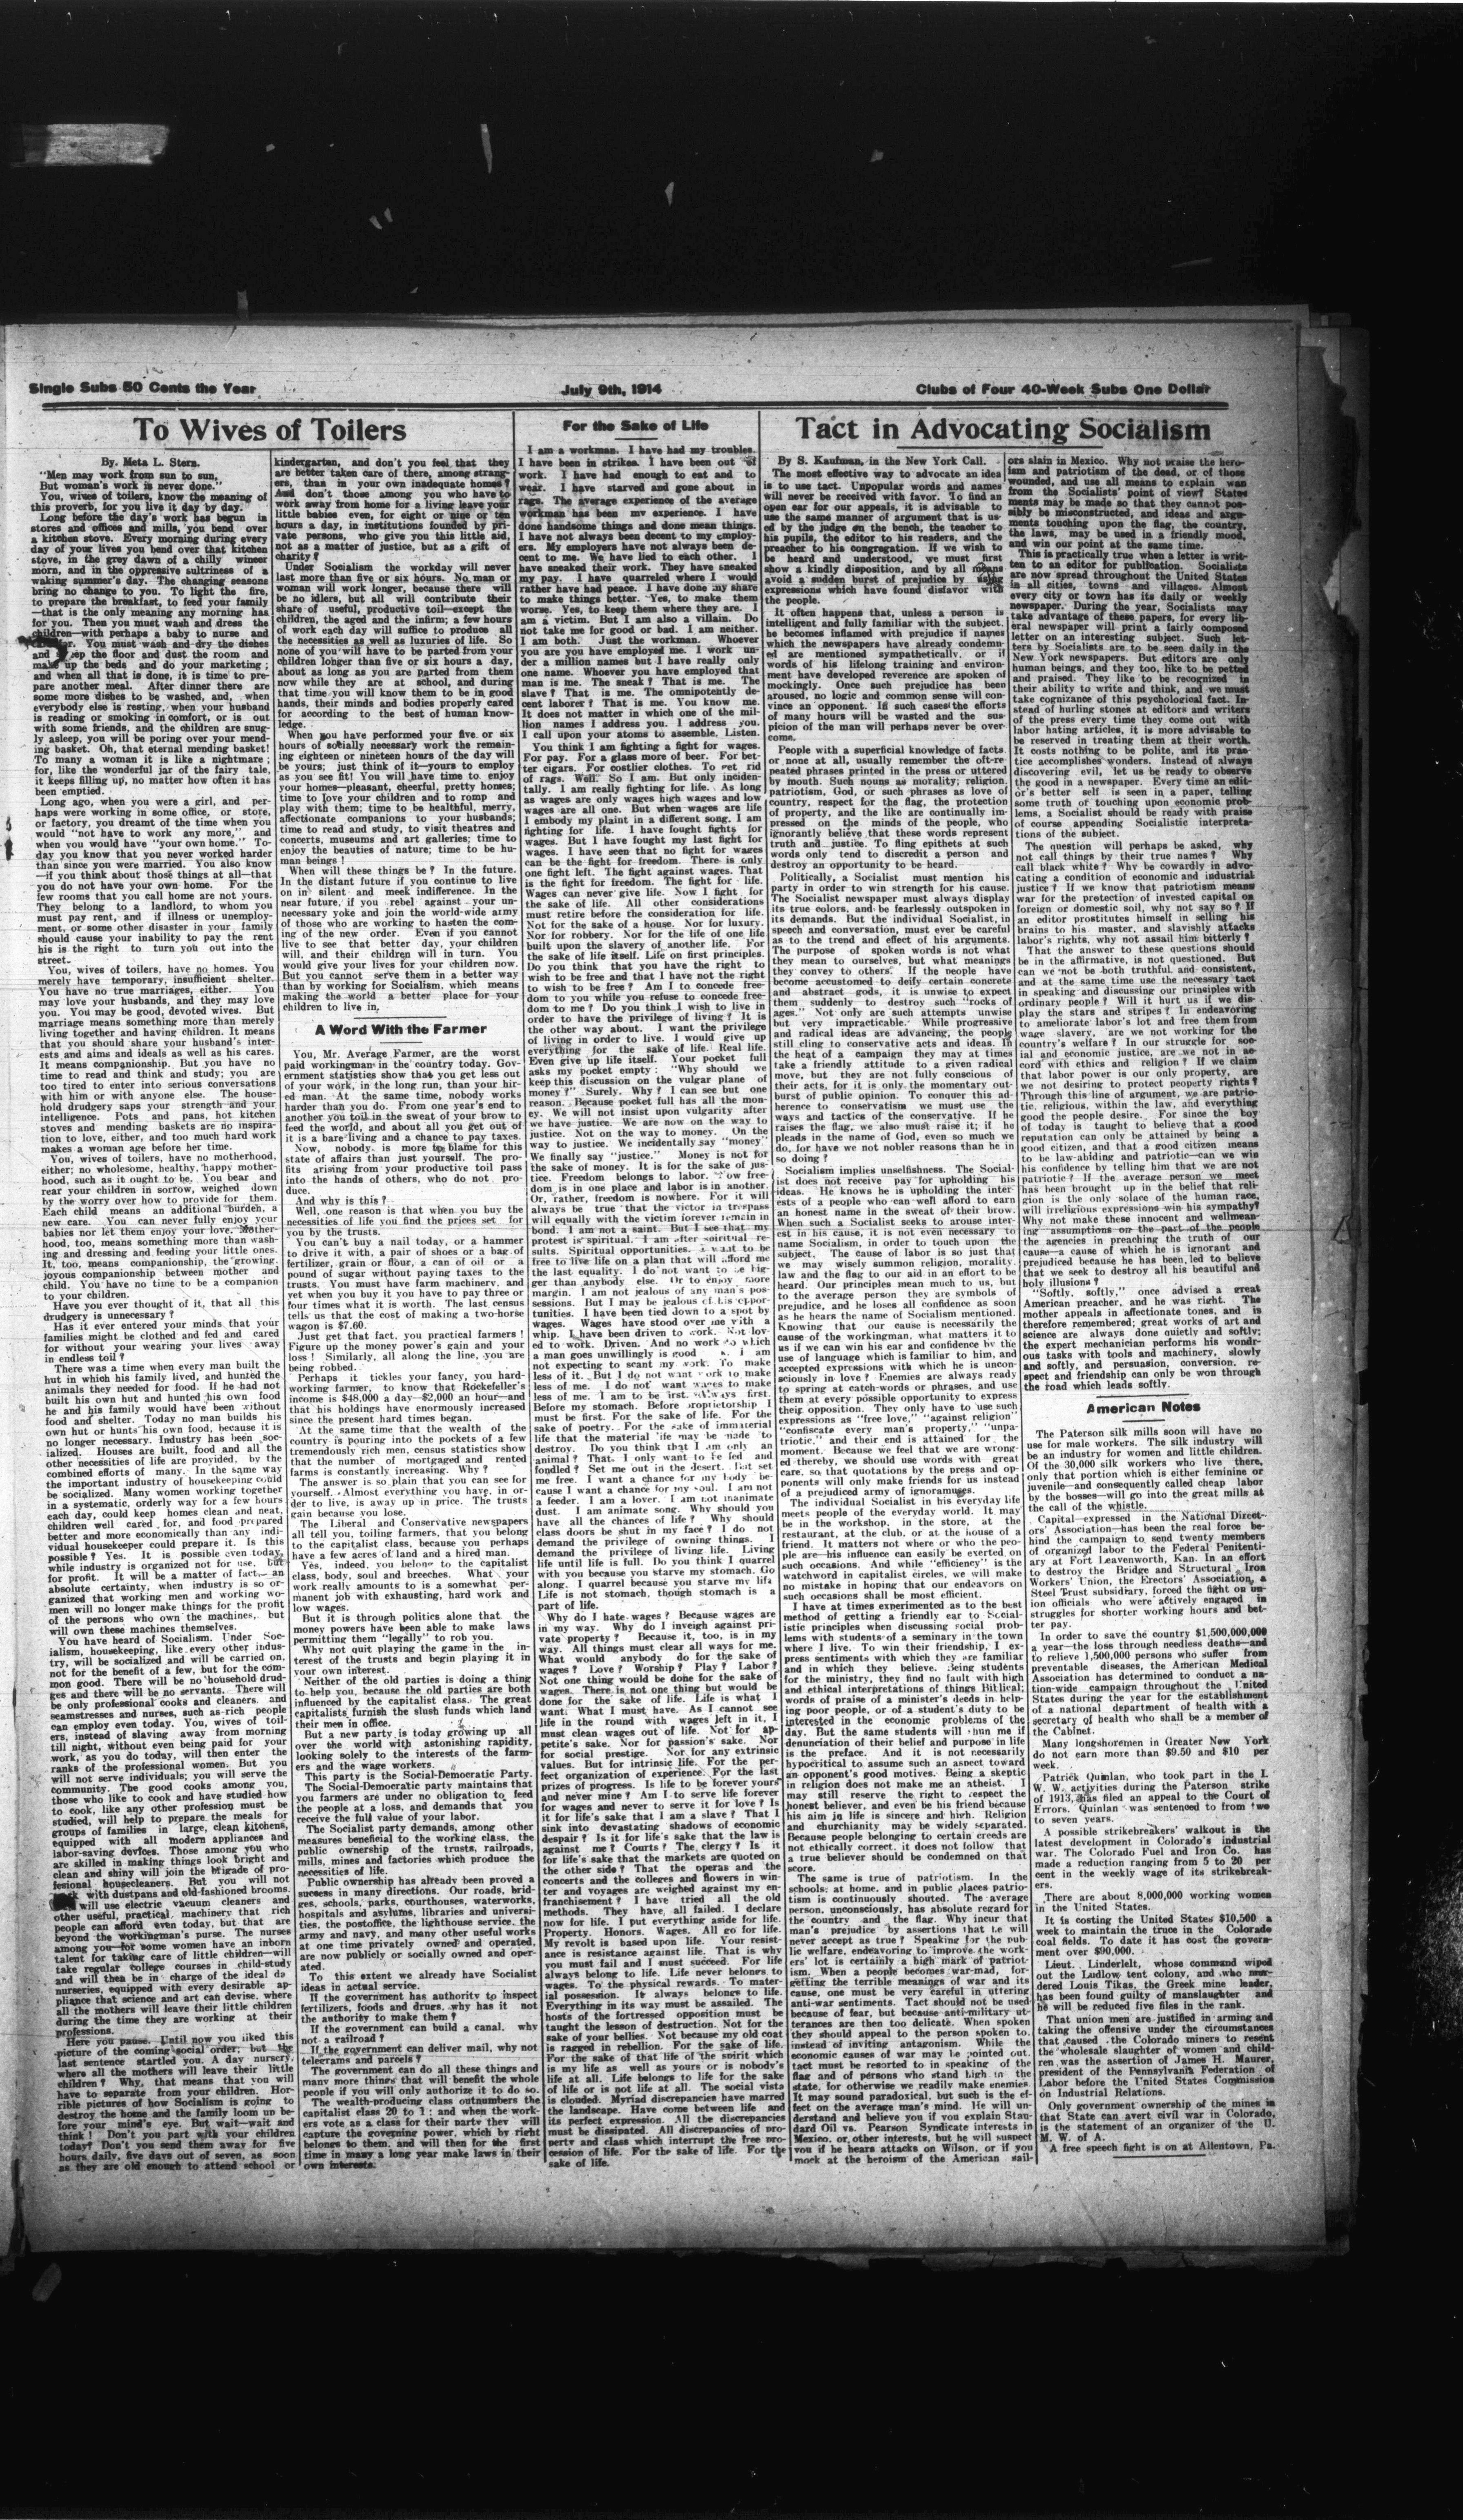 Single Subs 50 Cents the Year
July 9th, 1914
Clubs of Four 40-Week Subs One Dollar
To Wives of Toilers
By. Meta L. Stern.
"Men may work from sun to sun,
But woman's work is never done."
You, wives of toilers, know the meaning of
this proverb, for you live it day by day.
Long before the day's work has begun in
stores and offices and mills, you bend over
a kitchen stove. Every morning during every
day of your lives you bend over that kitchen
stove, in the grey dawn of a chilly winter
morn, and in the oppressive sultriness of a
waking summer's day. The changing seasons
bring no change to you. To light the fire,
to prepare the breakfast, to feed your family
—that is the only meaning any morning has
for you. Then you must wash and dress the
children—with perhaps a baby to nurse and
You must wash and dry the dishes
and ep the floor and dust the room and
make up the beds and do your marketing;
and when all that is done, it is time to pre-
pare another meal. After dinner there are
some more dishes to be washed, and, when
everybody else is resting, when your husband
is reading or smoking in comfort, or is out
with some friends, and the children are snug-
ly asleep, you will be poring over your mend-
ing basket. Oh, that eternal mending basket!
To many a woman it is like a nightmare;
for, like the wonderful jar of the fairy tale,
it keeps filling up, no matter how often it has
been emptied.
Long ago, when you were a girl, and per-
haps were working in some office, or store,
or factory, you dreamt of the time when you
would "not have to work any more," and
when you would have "your own home." To-
day you know that you never worked harder
than since you were married. You also know
—if you think about those things at all—that
you do not have your own home. For the
few rooms that you call home are not yours.
They belong to a landlord, to whom you
must pay rent, and if illness or unemploy-
ment, or some other disaster in your family
should cause your inability to pay the rent
his is the right to turn you out into the
street.
You, wives of toilers, have no homes. You
merely have temporary, insufficient shelter.
You have no true marriages, either. You
may love your husbands, and they may love
you. You may be good, devoted wives. But
marriage means something more than merely
living together and having children. It means
that you should share your husband's inter-
ests and aims and ideals as well as his cares.
It means companionship. But you have no
time to read and think and study; you are
too tired to enter into serious conversations
with him or with anyone else. The house-
hold drudgery saps your strength and your
intelligence. Pots and pans, hot kitchen
stoves and mending baskets are no inspira-
tion to love, either, and too much hard work
makes a woman age before her time.
You, wives of toilers, have no motherhood,
either; no wholesome, healthy, happy mother-
hood, such as it ought to be. You bear and
rear your children in sorrow, weighed down
by the worry over how to provide for them.
Each child means an additional burden, a
new care. You can never fully enjoy your
babies nor let them enjoy your love. Mother-
hood, too, means something more than wash-
ing and dressing and feeding your little ones.
It, too, means companionship, the growing,
joyous companionship between mother and
child. You have no time to be a companion
to your children.
Have you ever thought of it, that all this
drudgery is unnecessary?
Has it ever entered your minds that your
families might be clothed and fed and cared
for without your wearing your lives away
in endless toil?
There was a time when every man built the
hut in which his family lived, and hunted the
animals they needed for food. If he had not
built his own hut and hunted his own food
he and his family would have been without
food and shelter. Today no man builds his
own hut or hunts his own food, because it is
no longer necessary. Industry has been soc-
ialized. Houses are built, food and all the
other necessities of life are provided, by the
combined efforts of many. In the same way
the important industry of housekeeping could
be socialized. Many women working together
in a systematic, orderly way for a few hours
each day, could keep homes clean and neat,
children well cared for, and food prepared
better and more economically than any indi-
vidual housekeeper could prepare it. Is this
possible? Yes. It is possible even today,
while industry is organized not for use, but
for profit. It will be a matter of fact, an
absolute certainty, when industry is so or-
ganized that working men and working wo-
men will no longer make things for the profit
of the persons who own the machines, but
will own these machines themselves.
You have heard of Socialism. Under Soc-
ialism, housekeeping, like every other indus-
try, will be socialized and will be carried on,
not for the benefit of a few, but for the com-
mon good. There will be no household drud-
ges and there will be no servants. There will
be only professional cooks and cleaners, and
seamstresses and nurses, such as rich people
can employ even today. You, wives of toil-
ers, instead of slaving away from morning
till night, without even being paid for your
work, as you do today, will then enter the
ranks of the professional women. But you
will not serve individuals; you will serve the
community. The good cooks among you,
those who like to cook and have studied how
to cook, like any other profession must be
studied, will help to prepare the meals for
groups of families in large, clean kitchens,
equipped with all modern appliances and
labor-saving devices. Those among you who
are skilled in making things look bright and
clean and shiny will join the brigade of pro-
fessional housecleaners. But you will not
with dustpans and old-fashioned brooms.
will use electric vacuum cleaners and
other useful, practical machinery that rich
people can afford even today, but that are
beyond the workingman's purse. The nurses
among you—for some women have an inborn
talent for taking care of little children—will
take regular college courses in child-study
and will then be in charge of the ideal da
nurseries, equipped with every desirable ap-
pliance that science and art can devise, where
all the mothers will leave their little children
during the time they are working at their
professions.
Here you pause. Until now you liked this
picture of the coming social order; but the
last sentence startled you. A day nursery,
where all the mothers will leave their little
children? Why, that means that you will
have to separate from your children. Hor-
rible pictures of how Socialism is going to
destroy the home and the family loom up be-
fore your mind's eye. But wait—wait and
think! Don't you part with your children
today? Don't you send them away for five
hours daily, five days out of seven, as soon
as they are old enough to attend school or
kindergarten, and don't you feel that they
are better taken care of there, among strang-
ers, than in your own inadequate homes?
And don't those among you who have to
work away from home for a living leave your
little babies even, for eight or nine or ten
hours a day, in institutions founded by pri-
vate persons, who give you this little aid,
not as a matter of justice, but as a gift of
charity?
Under Socialism the workday will never
last more than five or six hours. No man or
woman will work longer, because there will
be no idlers, but all will contribute their
share of useful, productive toil—except the
children, the aged and the infirm; a few hours
of work each day will suffice to produce all
the necessities as well as luxuries of life. So
none of you will have to be parted from your
children longer than five or six hours a day,
about as long as you are parted from them
now while they are at school, and during
that time you will know them to be in good
hands, their minds and bodies properly cared
for according to the best of human know-
ledge.
When you have performed your five or six
hours of socially necessary work the remain-
ing eighteen or nineteen hours of the day will
be yours; just think of it—yours to employ
as you see fit! You will have time to enjoy
your homes—pleasant, cheerful, pretty homes;
time to love your children and to romp and
play with them; time to be healthful, merry,
affectionate companions to your husbands;
time to read and study, to visit theatres and
concerts, museums and art galleries; time to
enjoy the beauties of nature; time to be hu-
man beings!
When will these things be? In the future.
In the distant future if you continue to live
on in silent and meek indifference. In the
near future, if you rebel against your un-
necessary yoke and join the world-wide army
of those who are working to hasten the com-
ing of the new order. Even if you cannot
live to see that better day, your children
will, and their children will in turn. You
would give your lives for your children now.
But you cannot serve them in a better way
than by working for Socialism, which means
making the world a better place for your
children to live in.
A Word With the Farmer
You, Mr. Average Farmer, are the worst
paid workingman in the country today. Gov-
ernment statistics show that you get less out
of your work, in the long run, than your hir-
ed man. At the same time, nobody works
harder than you do. From one year's end to
another you toil in the sweat of your brow to
feed the world, and about all you get out of
it is a bare living and a chance to pay taxes.
Now, nobody is more to blame for this
state of affairs than just yourself. The pro-
fits arising from your productive toil pass
into the hands of others, who do not pro-
duce.
And why is this?
Well, one reason is that when you buy the
necessities of life you find the prices set for
you by the trusts.
You can't buy a nail today, or a hammer
to drive it with, a pair of shoes or a bag of
fertilizer, grain or flour, a can of oil or a
pound of sugar without paying taxes to the
trusts. You must have farm machinery, and
yet when you buy it you have to pay three or
four times what it is worth. The last census
tells us that the cost of making a two-horse
wagon is $7.60.
Just get that fact, you practical farmers!
Figure up the money power's gain and your
loss! Similarly, all along the line, you are
being robbed.
Perhaps it tickles your fancy, you hard-
working farmer, to know that Rockefeller's
income is $48,000 a day—$2,000 an hour—and
that his holdings have enormously increased
since the present hard times began.
At the same time that the wealth of the
country is pouring into the pockets of a few
tremendously rich men, census statistics show
that the number of mortgaged and rented
farms is constantly increasing. Why?
The answer is so plain that you can see for
yourself. Almost everything you have, in or-
der to live, is away up in price. The trusts
gain because you lose.
The Liberal and Conservative newspapers
all tell you, toiling farmers, that you belong
to the capitalist class, because you perhaps
have a few acres of land and a hired man.
Yes, indeed, you belong to the capitalist
class, body, soul and breeches. What your
work really amounts to is a somewhat per-
manent job with exhausting, hard work and
low wages.
But it is through politics alone that the
money powers have been able to make laws
permitting them "legally" to rob you.
Why not quit playing the game in the in-
terest of the trusts and begin playing it in
your own interest.
Neither of the old parties is doing a thing
to help you, because the old parties are both
influenced by the capitalist class. The great
capitalists furnish the slush funds which land
their men in office.
But a new party is today growing up all
over the world with astonishing rapidity,
looking solely to the interests of the farm-
ers and the wage workers.
This party is the Social-Democratic Party.
The Social-Democratic party maintains that
you farmers are under no obligation to feed
the people at a loss, and demands that you
receive the full value of your labor.
The Socialist party demands, among other
measures beneficial to the working class, the
public ownership of the trusts, railroads,
mills, mines and factories which produce the
necessities of life.
Public ownership has already been proved a
success in many directions. Our roads, brid-
ges, schools, parks, courthouses, waterworks,
hospitals and asylums, libraries and universi-
ties, the postoffice, the lighthouse service, the
army and navy, and many other useful works
at one time privately owned and operated,
are now publicly or socially owned and oper-
ated.
To this extent we already have Socialist
ideas in actual service.
If the government has authority to inspect
fertilizers, foods and drugs, why has it not
the authority to make them?
If the government can build a canal, why
not a railroad?
If the government can deliver mail, why not
telegrams and parcels?
The government can do all these things and
many more things that will benefit the whole
people if you will only authorize it to do so.
The wealth-producing class outnumbers the
capitalist class 20 to 1; and when the work-
ers vote as a class for their party they will
capture the governing power, which by right
belongs to them, and will then for the first
time in many a long year make laws in their
own interests.
For the Sake of Life
I am a workman. I have had my troubles.
I have been in strikes. I have been out of
work. I have had enough to eat and to
wear. I have starved and gone about in
rags. The average experience of the average
workman has been my experience. I have
done handsome things and done mean things.
I have not always been decent to my employ-
ers. My employers have not always been de-
cent to me. We have lied to each other. I
have sneaked their work. They have sneaked
my pay. I have quarreled where I would
rather have had peace. I have done my share
to make things better. Yes, to make them
worse. Yes, to keep them where they are. I
am a victim. But I am also a villain. Do
not take me for good or bad. I am neither.
I am both. Just the workman. Whoever
you are you have employed me. I work un-
der a million names but I have really only
one name. Whoever you have employed that
man is me. The sneak? That is me. The
slave? That is me. The omnipotently de-
cent laborer? That is me. You know me.
It does not matter in which one of the mil-
lion names I address you. I address you.
I call upon your atoms to assemble. Listen.
You think I am fighting a fight for wages.
For pay. For a glass more of beer. For bet-
ter cigars. For costlier clothes. To get rid
of rags. Well. So I am. But only inciden-
tally. I am really fighting for life. As long
as wages are only wages high wages and low
wages are all one. But when wages are life
I embody my plaint in a different song. I am
fighting for life. I have fought fights for
wages. But I have fought my last fight for
wages. I have seen that no fight for wages
can be the fight for freedom. There is only
one fight left. The fight against wages. That
is the fight for freedom. The fight for life.
Wages can never give life. Now I fight for
the sake of life. All other considerations
must retire before the consideration for life.
Not for the sake of a house. Nor for luxury.
Nor for robbery. Nor for the life of one life
built upon the slavery of another life. For
the sake of life itself. Life on first principles.
Do you think that you have the right to
wish to be free and that I have not the right
to wish to be free? Am I to concede free-
dom to you while you refuse to concede free-
dom to me? Do you think I wish to live in
order to have the privilege of living? It is
the other way about. I want the privilege
of living in order to live. I would give up
everything for the sake of life. Real life.
Even give up life itself. Your pocket full
asks my pocket empty: "Why should we
keep this discussion on the vulgar plane of
money?" Surely. Why? I can see but one
reason. Because pocket full has all the mon-
ey. We will not insist upon vulgarity after
we have justice. We are now on the way to
justice. Not on the way to money. On the
way to justice. We incidentally say "money"
We finally say "justice." Money is not for
the sake of money. It is for the sake of jus-
tice. Freedom belongs to labor. Now free-
dom is in one place and labor is in another.
Or, rather, freedom is nowhere. For it will
always be true that the victor in trespass
will equally with the victim forever remain in
bond. I am not a saint. But I see that my
protest is spiritual. I am after spiritual re-
sults. Spiritual opportunities. I want to be
free to live life on a plan that will afford me
the last equality. I do not want to be big-
ger than anybody else. Or to enjoy more
margin. I am not jealous of any man's pos-
sessions. But I may be jealous of his oppor-
tunities. I have been tied down to a spot by
wages. Wages have stood over me with a
whip. I have been driven to work. Not lov-
ed to work. Driven. And no work to which
a man goes unwillingly is good I am
not expecting to scant my work. To make
less of it. But I do not want work to make
less of me. I do not want wages to make
less of me. I am to be first. Always first.
Before my stomach. Before proprietorship I
must be first. For the sake of life. For the
sake of poetry. For the sake of immaterial
life that the material life may be made to
destroy. Do you think that I am only an
animal? That I only want to be fed and
fondled? Set me out in the desert. But set
me free. I want a chance for my body be-
cause I want a chance for my soul. I am not
a feeder. I am a lover. I am not inanimate
dust. I am animate song. Why should you
have all the chances of life? Why should
class doors be shut in my face? I do not
demand the privilege of owning things. I
demand the privilege of living life. Living
life until life is full. Do you think I quarrel
with you because you starve my stomach. Go
along. I quarrel because you starve my life
Life is not stomach, though stomach is a
part of life.
Why do I hate wages? Because wages are
in my way. Why do I inveigh against pri-
vate property? Because it, too, is in my
way. All things must clear all ways for me.
What would anybody do for the sake of
wages? Love? Worship? Play? Labor?
Not one thing would be done for the sake of
wages. There is not one thing but would be
done for the sake of life. Life is what I
want. What I must have. As I cannot see
life in the round with wages left in it, I
must clean wages out of life. Not for ap-
petite's sake. Nor for passion's sake. Nor
for social prestige. Nor for any extrinsic
values. But for intrinsic life. For the per-
fect organization of experience. For the last
prizes of progress. Is life to be forever yours
and never mine? Am I to serve life forever
for wages and never to serve it for love? Is
it for life's sake that I am a slave? That I
sink into devastating shadows of economic
despair? Is it for life's sake that the law is
against me? Courts? The clergy? Is it
for life's sake that the markets are quoted on
the other side? That the operas and the
concerts and the colleges and flowers in win-
ter and voyages are weighed against my en-
franchisement? I have tried all the old
methods. They have all failed. I declare
now for life. I put everything aside for life.
Property. Honors. Wages. All go for life.
My revolt is based upon life. Your resist-
ance is resistance against life. That is why
you must fail and I must succeed. For life
always belong to life. Life never belongs to
wages. To the physical rewards. To mater-
ial possession. It always belongs to life.
Everything in its way must be assailed. The
hosts of the fortressed opposition must be
taught the lesson of destruction. Not for the
sake of your bellies. Not because my old coat
is ragged in rebellion. For the sake of life.
For the sake of that life of the spirit which
is my life as well as yours or is nobody's
life at all. Life belongs to life for the sake
of life or is not life at all. The social vista
is clouded. Myriad discrepancies have marred
the landscape. Have come between life and
its perfect expression. All the discrepancies
must be dissipated. All discrepancies of pro-
perty and class which interrupt the free pro-
cession of life. For the sake of life. For the
sake of life.
Tact in Advocating Socialism
By S. Kaufman, in the New York Call.
The most effective way to advocate an idea
is to use tact. Unpopular words and names
will never be received with favor. To find an
open ear for our appeals, it is advisable to
use the same manner of argument that is us-
ed by the judge on the bench, the teacher to
his pupils, the editor to his readers, and the
preacher to his congregation. If we wish to
be heard and understood, we must first
show a kindly disposition, and by all means
avoid a sudden burst of prejudice by using
expressions which have found disfavor with
the people.
It often happens that, unless a person is
intelligent and fully familiar with the subject,
he becomes inflamed with prejudice if names
which the newspapers have already condemn-
ed are mentioned sympathetically, or if
words of his lifelong training and environ-
ment have developed reverence are spoken of
mockingly. Once such prejudice has been
aroused, no logic and common sense will con-
vince an opponent. In such cases the efforts
of many hours will be wasted and the sus-
picion of the man will perhaps never be over-
come.
People with a superficial knowledge of facts
or none at all, usually remember the oft-re-
peated phrases printed in the press or uttered
by mouth. Such nouns as morality, religion,
patriotism, God, or such phrases as love of
country, respect for the flag, the protection
of property, and the like are continually im-
pressed on the minds of the people, who
ignorantly believe that these words represent
truth and justice. To fling epithets at such
words only tend to discredit a person and
destroy an opportunity to be heard.
Politically, a Socialist must mention his
party in order to win strength for his cause.
The Socialist newspaper must always display
its true colors, and be fearlessly outspoken in
its demands. But the individual Socialist, in
speech and conversation, must ever be careful
as to the trend and effect of his arguments.
The purpose of spoken words is not what
they mean to ourselves, but what meanings
they convey to others. If the people have
become accustomed to deify certain concrete
and abstract gods, it is unwise to expect
them suddenly to destroy such "rocks of
ages." Not only are such attempts unwise
but very impracticable. While progressive
and radical ideas are advancing, the people
still cling to conservative acts and ideas. In
the heat of a campaign they may at times
take a friendly attitude to a given radical
move, but they are not fully conscious of
their acts, for it is only the momentary out-
burst of public opinion. To conquer this ad-
herence to conservatism we must use the
ways and tactics of the conservative. If he
raises the flag, we also must raise it; if he
pleads in the name of God, even so much we
do, for have we not nobler reasons than he in
so doing?
Socialism implies unselfishness. The Social-
ist does not receive pay for upholding his
ideas. He knows he is upholding the inter-
ests of a people who can well afford to earn
an honest name in the sweat of their brow.
When such a Socialist seeks to arouse inter-
est in his cause, it is not even necessary to
name Socialism, in order to touch upon the
subject. The cause of labor is so just that
we may wisely summon religion, morality,
law and the flag to our aid in an effort to be
heard. Our principles mean much to us, but
to the average person they are symbols of
prejudice, and he loses all confidence as soon
as he hears the name of Socialism mentioned.
Knowing that our cause is necessarily the
cause of the workingman, what matters it to
us if we can win his ear and confidence by the
use of language which is familiar to him, and
accepted expressions with which he is uncon-
sciously in love? Enemies are always ready
to spring at catch-words or phrases, and use
them at every possible opportunity to express
their opposition. They only have to use such
expressions as "free love," "against religion"
"confiscate every man's property," "unpa-
triotic," and their end is attained for the
moment. Because we feel that we are wrong-
ed thereby, we should use words with great
care, so that quotations by the press and op-
ponents will only make friends for us instead
of a prejudiced army of ignoramuses.
The individual Socialist in his everyday life
meets people of the everyday world. It may
be in the workshop, in the store, at the
restaurant, at the club, or at the house of a
friend. It matters not where or who the peo-
ple are—his influence can easily be exerted on
such occasions. And while "efficiency" is the
watchword in capitalist circles, we will make
no mistake in hoping that our endeavors on
such occasions shall be most efficient.
I have at times experimented as to the best
method of getting a friendly ear to Social-
istic principles when discussing social prob-
lems with students of a seminary in the town
where I live. To win their friendship, I ex-
press sentiments with which they are familiar
and in which they believe. Being students
for the ministry, they find no fault with high
and ethical interpretations of things Biblical;
words of praise of a minister's deeds in help-
ing poor people, or of a student's duty to be
interested in the economic problems of the
day. But the same students will shun me if
denunciation of their belief and purpose in life
is the preface. And it is not necessarily
hypocritical to assume such an aspect toward
an opponent's good motives. Being a skeptic
in religion does not make me an atheist. I
may still reserve the right to respect the
honest believer, and even be his friend because
his aim in life is sincere and high. Religion
and churchianity may be widely separated.
Because people belonging to certain creeds are
not ethically correct, it does not follow that
a true believer should be condemned on that
score.
The same is true of patriotism. In the
schools, at home, and in public places patrio-
tism is continuously shouted. The average
person, unconsciously, has absolute regard for
the country and the flag. Why incur that
man's prejudice by assertions that he will
never accept as true? Speaking for the pub-
lic welfare, endeavoring to improve the work-
ers' lot is certainly a high mark of patriot-
ism. When a people becomes war-mad, for-
getting the terrible meanings of war and its
cause, one must be very careful in uttering
anti-war sentiments. Tact should not be used
because of fear, but because anti-military ut-
terances are then too delicate. When spoken
they should appeal to the person spoken to,
instead of inviting antagonism. While the
economic causes of war may be pointed out,
tact must be resorted to in speaking of the
flag and of persons who stand high in the
state, for otherwise we readily make enemies.
It may sound paradoxical, but such is the ef-
fect on the average man's mind. He will un-
derstand and believe you if you explain Stan-
dard Oil vs. Pearson Syndicate interests in
Mexico, or other interests, but he will suspect
you if he hears attacks on Wilson, or if you
mock at the heroism of the American sail-
ors slain in Mexico. Why not praise the hero-
ism and patriotism of the dead, or of those
wounded, and use all means to explain war
from the Socialists' point of view? State-
ments may be made so that they cannot pos-
sibly be misconstructed, and ideas and argu-
ments touching upon the flag, the country,
the laws, may be used in a friendly mood,
and win our point at the same time.
This is practically true when a letter is writ-
ten to an editor for publication. Socialists
are now spread throughout the United States
in all cities, towns and villages. Almost
every city or town has its daily or weekly
newspaper. During the year, Socialists may
take advantage of these papers, for every lib-
eral newspaper will print a fairly composed
letter on an interesting subject. Such let-
ters by Socialists are to be seen daily in the
New York newspapers. But editors are only
human beings, and they too, like to be petted
and praised. They like to be recognized in
their ability to write and think, and we must
take cognizance of this psychological fact. In-
stead of hurling stones at editors and writers
of the press every time they come out with
labor hating articles, it is more advisable to
be reserved in treating them at their worth.
It costs nothing to be polite, and its prac-
tice accomplishes wonders. Instead of always
discovering evil, let us be ready to observe
the good in a newspaper. Every time an edit-
or's better self is seen in a paper, telling
some truth or touching upon economic prob-
lems, a Socialist should be ready with praise
of course appending Socialistic interpreta-
tions of the subject.
The question will perhaps be asked, why
not call things by their true names? Why
call black white? Why be cowardly in advo-
cating a condition of economic and industrial
justice? If we know that patriotism means
war for the protection of invested capital on
foreign or domestic soil, why not say so? If
an editor prostitutes himself in selling his
brains to his master, and slavishly attacks
labor's rights, why not assail him bitterly?
That the answer to these questions should
be in the affirmative, is not questioned. But
can we not be both truthful and consistent,
and at the same time use the necessary tact
in speaking and discussing our principles with
ordinary people? Will it hurt us if we dis-
play the stars and stripes? In endeavoring
to ameliorate labor's lot and free them from
wage slavery, are we not working for the
country's welfare? In our struggle for soc-
ial and economic justice, are we not in ac-
cord with ethics and religion? If we claim
that labor power is our only property, are
we not desiring to protect peoperty rights?
Through this line of argument, we are patrio-
tic, religious, within the law, and everything
good the people desire. For since the boy
of today is taught to believe that a good
reputation can only be attained by being a
good citizen, and that a good citizen means
to be law-abiding and patriotic—can we win
his confidence by telling him that we are not
patriotic? If the average person we meet
has been brought up in the belief that reli-
gion is the only solace of the human race,
will irreligious expressions win his sympathy?
Why not make these innocent and wellmean-
ing assumptions on the part of the people
the agencies in preaching the truth of our
cause—a cause of which he is ignorant and
prejudiced because he has been led to believe
that we seek to destroy all his beautiful and
holy illusions?
"Softly, softly," once advised a great
American preacher, and he was right. The
mother appeals in affectionate tones, and is
therefore remembered; great works of art and
science are always done quietly and softly;
the expert mechanician performs his wondr-
ous tasks with tools and machinery, slowly
and softly, and persuasion, conversion, re-
spect and friendship can only be won through
the road which leads softly.
American Notes
The Paterson silk mills soon will have no
use for male workers. The silk industry will
be an industry for women and little children.
Of the 30,000 silk workers who live there,
only that portion which is either feminine or
juvenile—and consequently called cheap labor
by the bosses—will go into the great mills at
the call of the whistle.
Capital—expressed in the National Direct-
ors' Association—has been the real force be-
hind the campaign to send twenty members
of organized labor to the Federal Penitenti-
ary at Fort Leavenworth, Kan. In an effort
to destroy the Bridge and Structural Iron
Workers' Union, the Erectors' Association, a
Steel Trust subsidrary, forced the fight on un-
ion officials who were actively engaged in
struggles for shorter working hours and bet-
ter pay.
In order to save the country $1,500,000,000
a year—the loss through needless deaths—and
to relieve 1,500,000 persons who suffer from
preventable diseases, the American Medical
Association has determined to conduct a na-
tion-wide campaign throughout the United
States during the year for the establishment
of a national department of health with a
secretary of health who shall be a member of
the Cabinet.
Many longshoremen in Greater New York
do not earn more than $9.50 and $10 per
week.
Patrick Quinlan, who took part in the I.
W. W. activities during the Paterson strike
of 1913, has filed an appeal to the Court of
Errors. Quinlan was sentenced to from two
to seven years.
A possible strikebreakers' walkout is the
latest development in Colorado's industrial
war. The Colorado Fuel and Iron Co. has
made a reduction ranging from 5 to 20 per
cent in the weekly wage of its strikebreak-
ers.
There are about 8,000,000 working women
in the United States.
It is costing the United States $10,500 a
week to maintain the truce in the Colorado
coal fields. To date it has cost the govern-
ment over $90,000.
Lieut. Linderlelt, whose command wiped
out the Ludlow tent colony, and who mur-
dered Louis Tikas, the Greek mine leader,
has been found guilty of manslaughter and
he will be reduced five files in the rank.
That union men are justified in arming and
taking the offensive under the circumstances
that caused the Colorado miners to resent
the wholesale slaughter of women and child-
ren was the assertion of James H. Maurer,
president of the Pennsylvania Federation of
Labor before the United States Commission
on Industrial Relations.
Only government ownership of the mines in
that State can avert civil war in Colorado,
is the statement of an organizer of the U.
M. W. of A.
A free speech fight is on at Allentown, Pa.